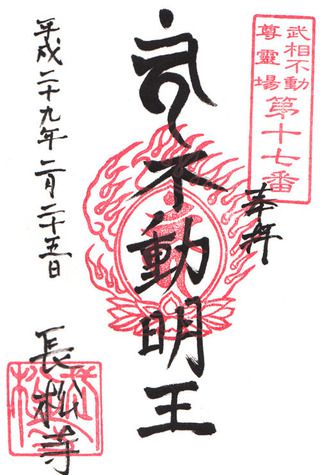 武相不動
尊霊場
第十七番
奉拝
不動明王
平成二十九年二月二十五日
長松寺